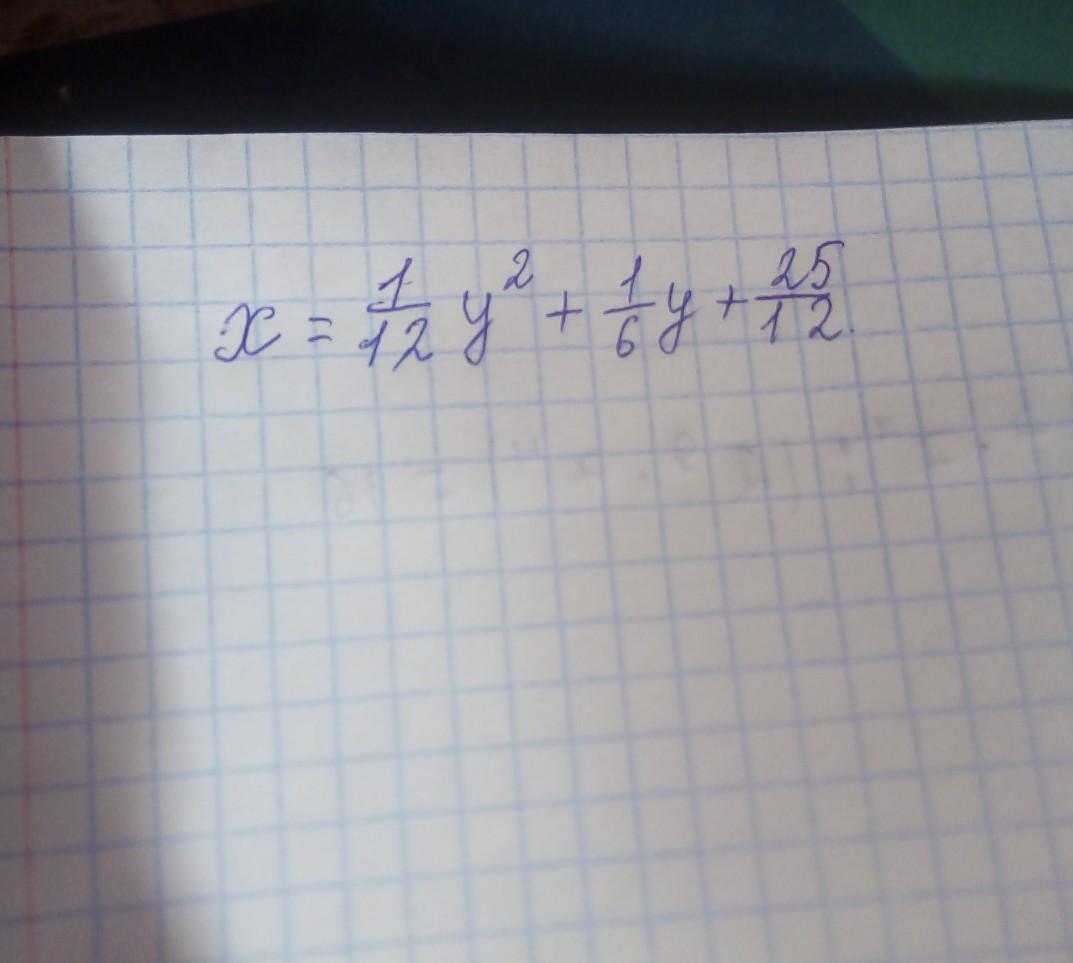 x = 1/12 y² + 1/6 y + 25/12.